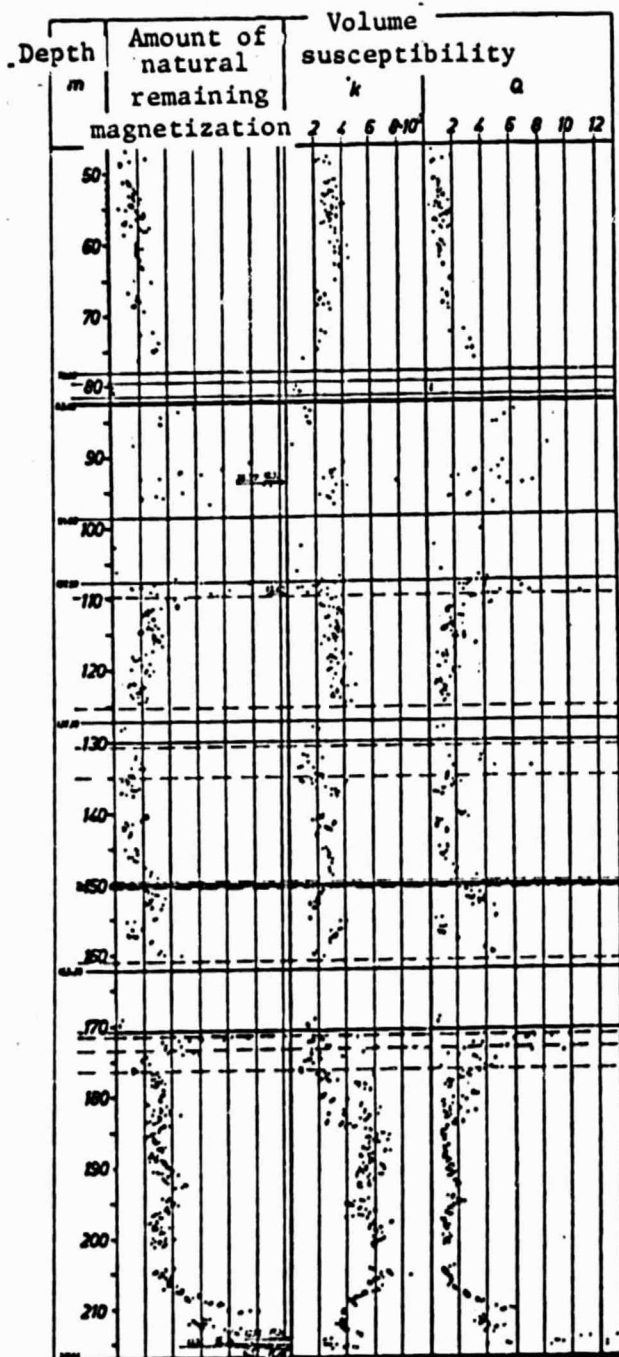 Depth
m
Amount of
natural
remaining
magnetization
Volume
susceptibility
k
Q
2 4 6 8·10
2 4 6 8 10 12
50
60
70
80
90
100
110
120
130
140
150
160
170
180
190
200
210